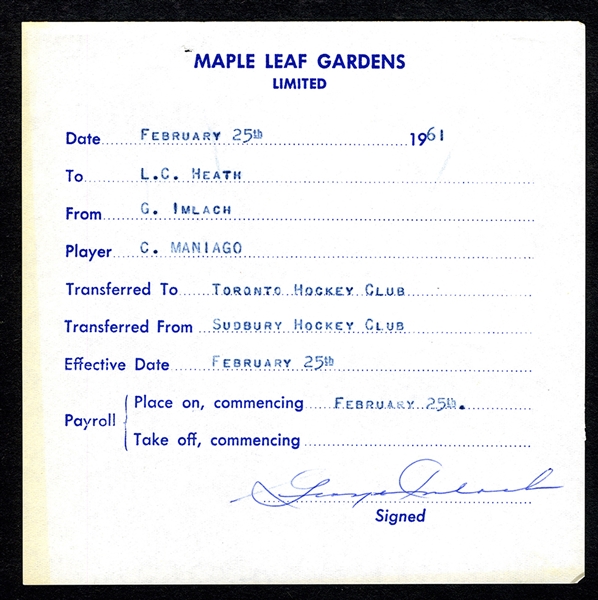 MAPLE LEAF GARDENS
LIMITED
Date FEBRUARY 25th 1961
To L.C. HEATH
From G. IMLACH
Player C. MANIAGO
Transferred To TORONTO HOCKEY CLUB
Transferred From SUDBURY HOCKEY CLUB
Effective Date FEBRUARY 25th
Payroll
Place on, commencing FEBRUARY 25th.
Take off, commencing
George Imlach
Signed